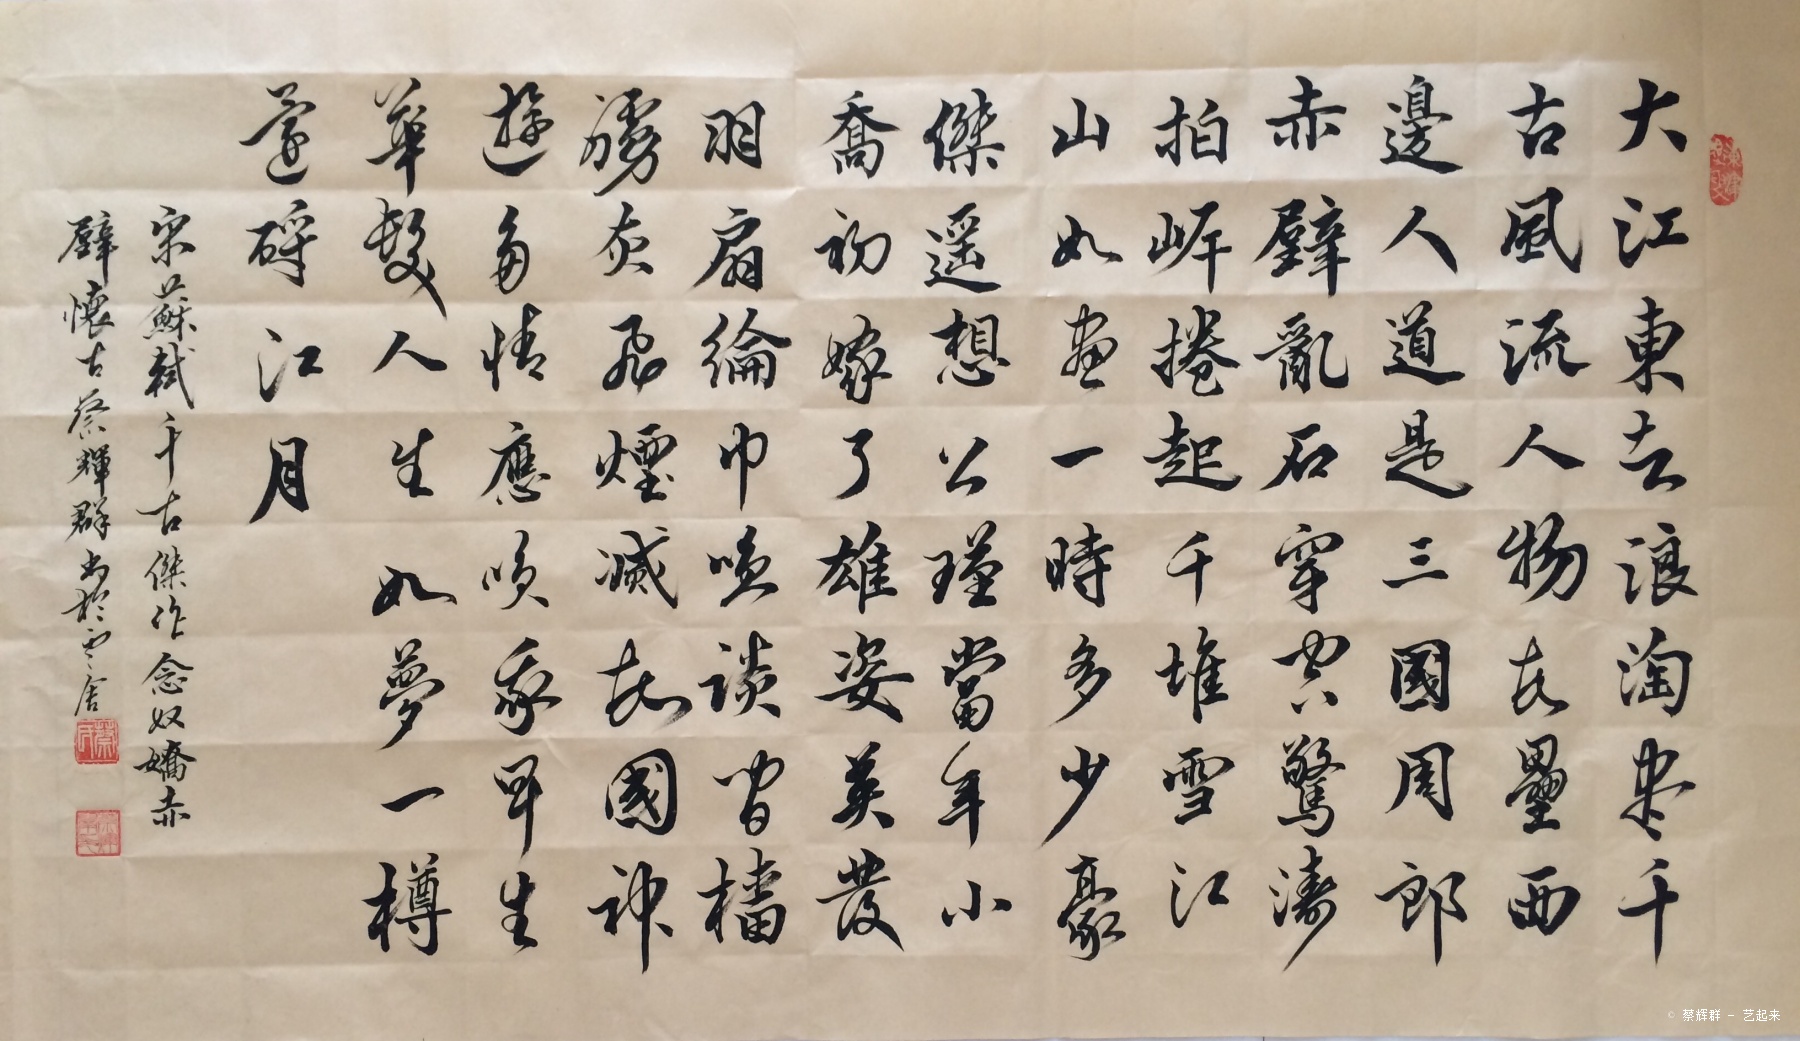 大江東去浪淘尽千
古風流人物故壘西
邊人道是三國周郎
赤壁亂石穿空驚濤
拍岸捲起千堆雪江
山如畫一時多少豪
傑遥想公瑾當年小
喬初嫁了雄姿英發
羽扇綸巾笑談間檣
艣灰飛煙滅故國神
遊多情應笑我早生
華髮人生如夢一樽
還酹江月
宋蘇軾千古傑作念奴嬌赤
壁懷古蔡輝群书於雲舍
蔡氏
© 蔡辉群 - 艺起来